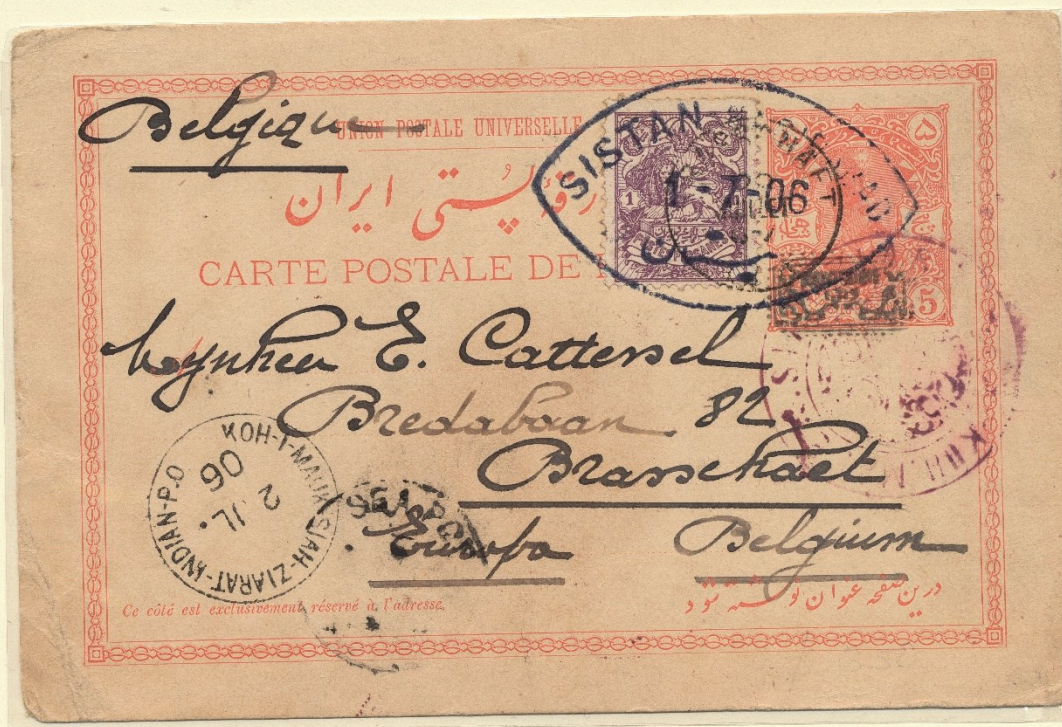 Belgique
UNION POSTALE UNIVERSELLE
ایران پستی
CARTE POSTALE DE
SISTAN
1-7-06
1
۵
5
E. Cattersel
Bredabaan 82
Brasschaet
Europa Belgium
KOH-I-MALIK-SIAH-ZIARAT-INDIAN-P.O
2 JL.
06
SEA POST
Ce côté est exclusivement réservé à l'adresse.
درین صفحه عنوان نوشته شود